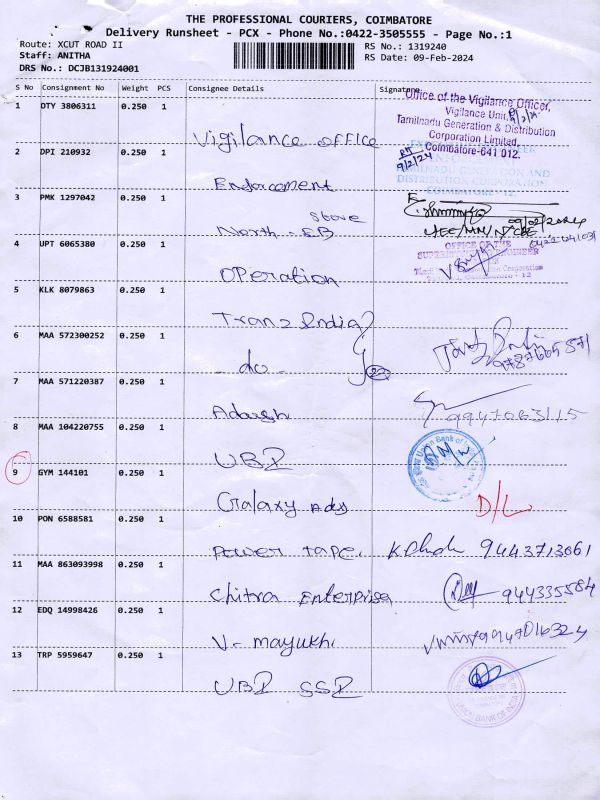 THE PROFESSIONAL COURIERS, COIMBATORE
Delivery Runsheet - PCX - Phone No.:0422-3505555 - Page No.:1
Route: XCUT ROAD II
Staff: ANITHA
DRS No.: DCJB131924001
RS No.: 1319240
RS Date: 09-Feb-2024
S No Consignment No Weight PCS Consignee Details Signature
1 DTY 3806311 0.250 1
Vigilance office
Office of the Vigilance Officer,
Vigilance Unit,
Tamilnadu Generation & Distribution
Corporation Limited,
Coimbatore-641 012.
9/2/24
2 DPI 210932 0.250 1
Endorcement
DISTRIBUTION CORPORATION
COIMBATORE - 12.
3 PMK 1297042 0.250 1
North - EB Store
09/02/2024
4 UPT 6065380 0.250 1
Operation
OFFICE OF THE
5 KLK 8079863 0.250 1
Tranz India
6 MAA 572300252 0.250 1
- do -
7 MAA 571220387 0.250 1
Adarsh
9947063115
8 MAA 104220755 0.250 1
UBI
9 GYM 144101 0.250 1
Galaxy Ads
D/L
10 PON 6588581 0.250 1
Power tape,
9443713061
11 MAA 863093998 0.250 1
Chitra Enterprise
944335584
12 EDQ 14998426 0.250 1
V- mayukhi
13 TRP 5959647 0.250 1
UBI SSI
UNION BANK OF INDIA